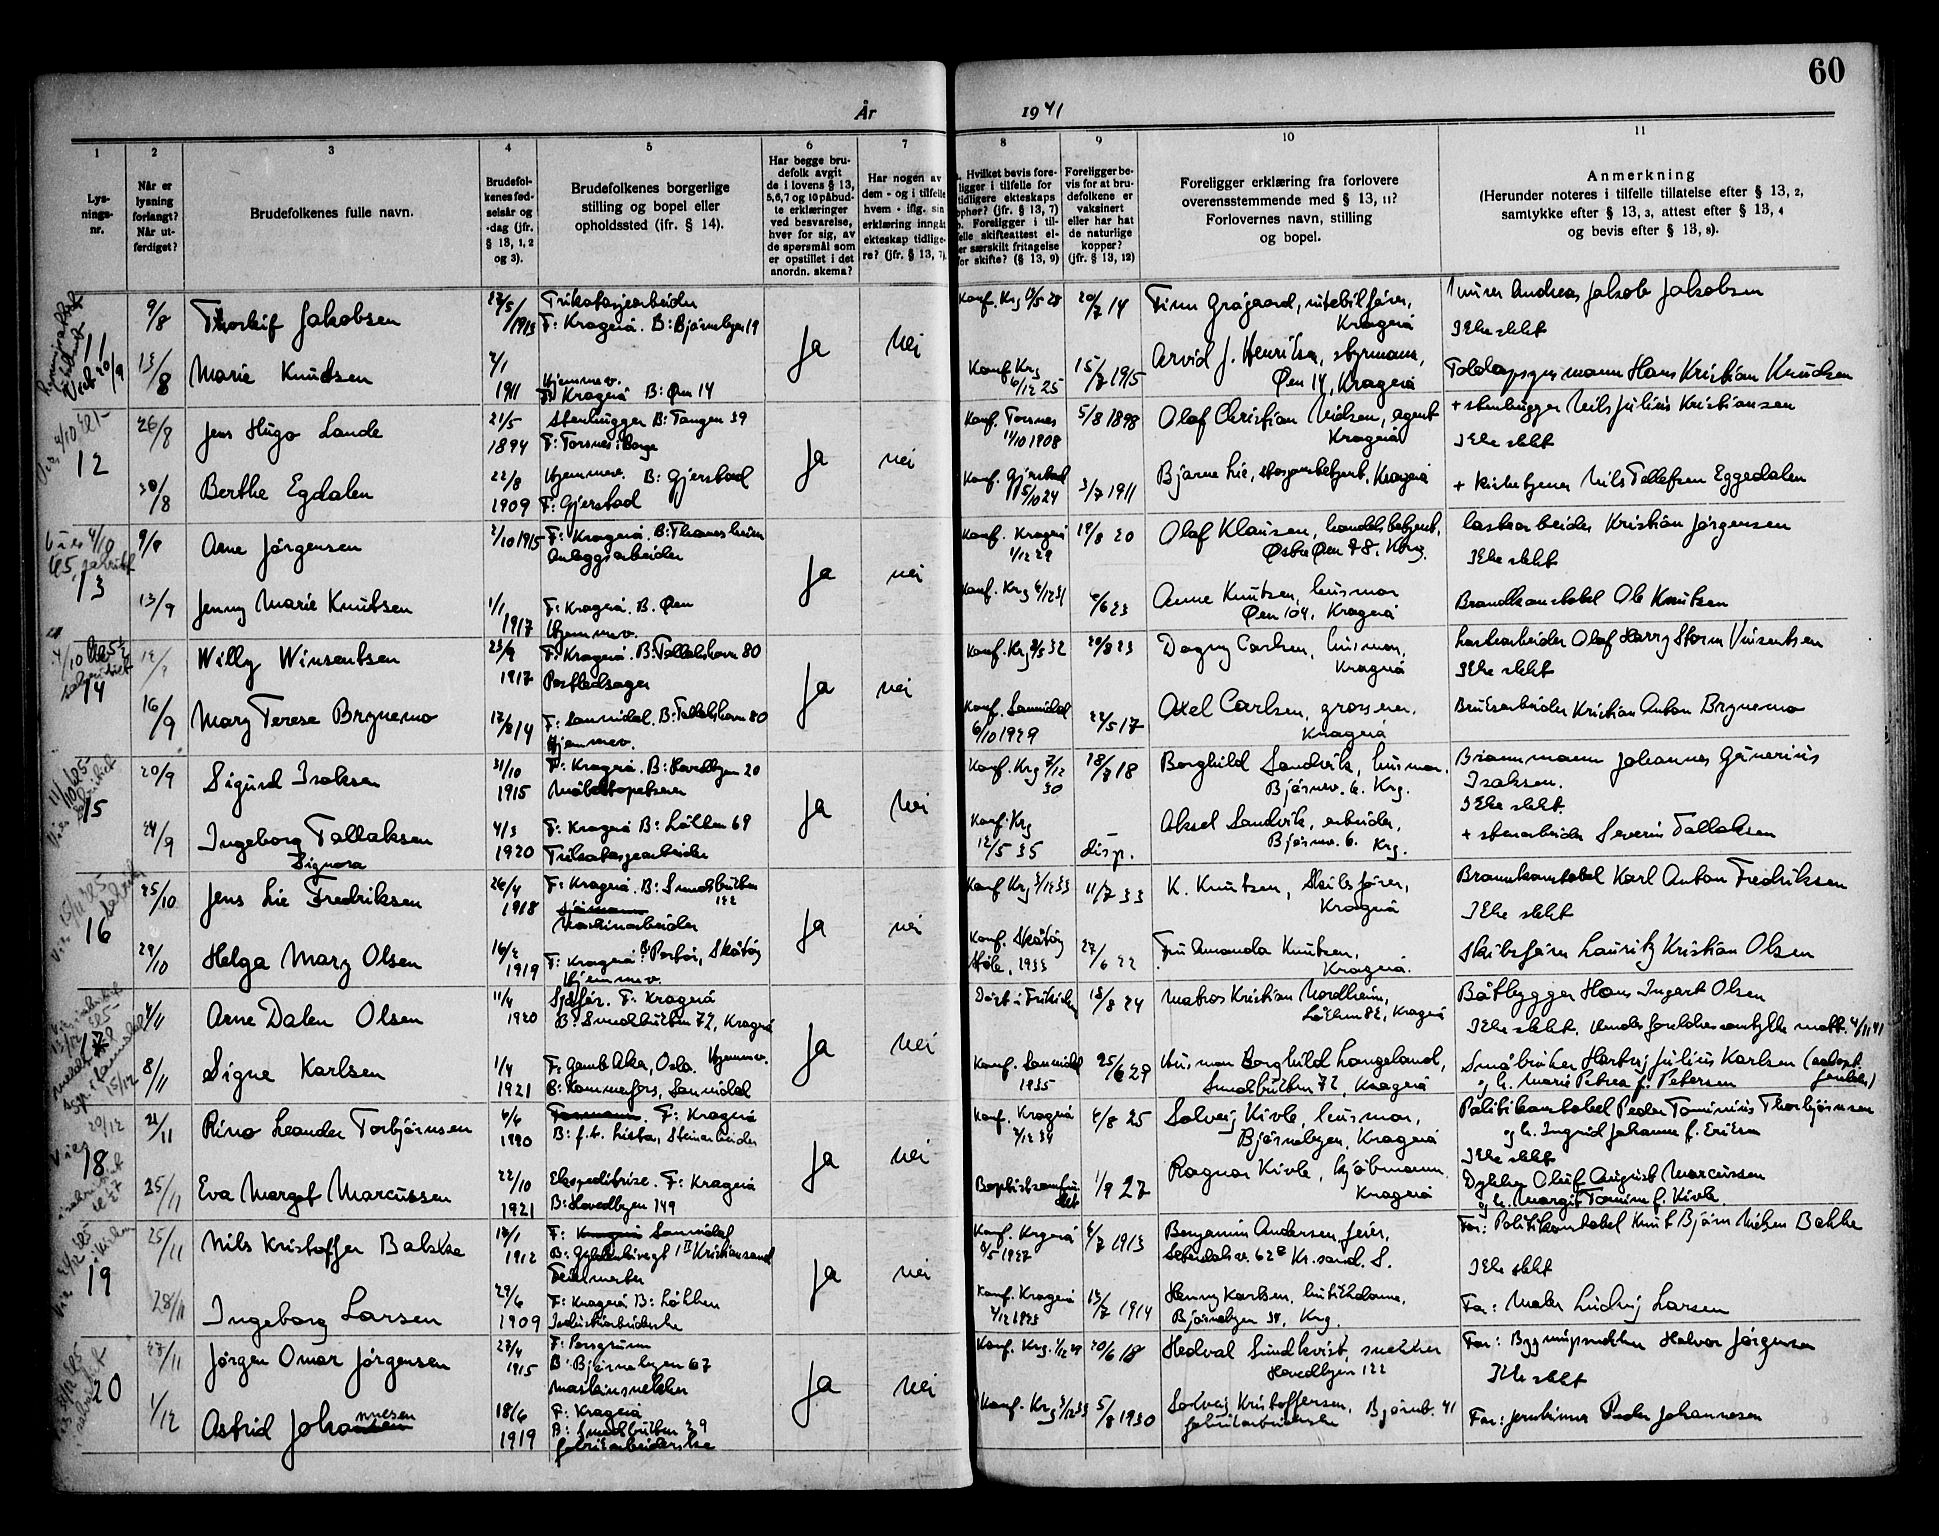 60
År 1941
1 2 3 4 5 6 7 8 9 10 11
Lys-
nings-
nr.
Når er
lysning
forlangt?
Når ut-
ferdiget?
Brudefolkenes fulle navn.
Brudefol-
kenes fød-
selsår og
-dag (jfr.
§ 13, 1, 2
og 3).
Brudefolkenes borgerlige
stilling og bopel eller
opholdssted (ifr. § 14).
Har begge bru-
defolk avgit
de i lovens § 13,
5,6,7 og 10 påbud-
te erklæringer
ved besvarelse,
hver for sig, av
de spørsmål som
er opstillet i det
anordn. skema?
Har nogen av
dem - og i tilfelle
hvem - iflg. sin
erklæring inngåt
ekteskap tidlige-
re? (jfr. § 13, 7)
Hvilket bevis fore-
ligger i tilfelle for
tidligere ekteskaps
ophør? (jfr. § 13, 7)
b. Foreligger i til-
felle skifteattest el-
ler særskilt fritagelse
for skifte? (§ 13, 9)
Foreligger be-
vis for at bru-
defolkene er
vaksinert
eller har hat
de naturlige
kopper?
(jfr. § 13, 12)
Foreligger erklæring fra forlovere
overensstemmende med § 13, 11?
Forlovernes navn, stilling
og bopel.
Anmerkning
(Herunder noteres i tilfelle tillatelse efter § 13, 2,
samtykke efter § 13, 3, attest efter § 13, 4
og bevis efter § 13, 8).
11
9/8 Thorleif Jakobsen
Trikotasjearbeider
F: Kragerø. B: Bjørnsbyen 19
Ja nei
20/7 14
Finn Grøgaard, rutebilfører,
Kragerø
Murer Andreas Jakob Jakobsen
Ikke slekt
13/8 Marie Knudsen
2/1
1911
Hjemmev.
F: Kragerø B: Øen 14
Konf. Krg
6/12 25
15/7 1915
Arvid J. Henriksen, styrmann,
Øen 14, Kragerø
Toldopsynsmann Hans Kristian Knudsen
12
26/8 Jens Hugo Lande
21/5
1894
Stenhugger B: Tangen 39
F: Torsnes i Borge
Ja nei
Konf. Torsnes
11/10 1908
5/8 1898
Olaf Christian Nilsen, agent
Kragerø
+ stenhugger Nils Julius Kristiansen
Ikke slekt
30/8 Berthe Egdalen
22/8
1909
Hjemmev. B: Gjerstad
F: Gjerstad
Konf. Gjerstad
5/10 24
3/7 1911
Bjarne Lie, Kragerø
+ kirketjener Nils Tellefsen Eggedalen
13
Arne Jørgensen
2/10 1915
F: Kragerø. B:
Anleggsarbeider
Ja nei
Konf. Kragerø
1/12 29
19/8 20
Olaf Klausen, handelsbetjent,
Østre Øen 98. Krg.
Lastearbeider Kristian Jørgensen
Ikke slekt
13/9 Jenny Marie Knutsen
1/1
1917
F: Kragerø. B. Øen
Hjemmev.
Konf. Krg 6/12 31
Anne Knutsen, husmor
Øen 104, Kragerø
Brandkonstabel Ole Knutsen
14
Willy Winsentsen
1917
F: Kragerø. B: Tallakshavn 80
Postbudsager
Ja nei
20/8 23
Dagny Carlsen, husmor,
Kragerø
Lastearbeider Olaf Harry Storm Vinsentsen
Ikke slekt
16/9 Mary Terese Brynemo
12/8 14
F: Sannidal. B: Tallakshavn 80
Hjemmev.
Konf. Sannidal
6/10 1929
22/5 17
Axel Carlsen, grosserer,
Kragerø
Bruksarbeider Kristian Anton Brynemo
15
20/9 Sigurd Isaksen
31/10
1915
F: Kragerø. B: Hovedbyen 20
Møbeltapetserer
Ja nei
Konf. Krg 7/12
30
18/7 18
Borghild Sandvik, husmor,
Bjørnsv. 6. Krg.
Brannmann Johannes Gunerius
Isaksen.
Ikke slekt.
24/9 Ingeborg Tallaksen
Signora
4/3
1920
F: Kragerø B: Løkken 69
Trikotasjearbeider
Konf. Krg
12/5 35
disp.
Aksel Sandvik, arbeider,
Bjørnsv. 6. Krg.
+ stenarbeider Severin Tallaksen
16
25/10 Jens Lie Fredriksen
26/4
1918
F: Kragerø. B: Smedsbukten
122
Sjømann
Maskinarbeider
Ja nei
Konf. Krg 3/12 33
11/7 33
K. Knutzen, Skibsfører,
Kragerø
Brannkonstabel Karl Anton Fredriksen
Ikke slekt
29/10 Helga Mary Olsen
1919
F: Kragerø B: Portør, Skåtøy
Hjemmev.
Konf. Skåtøy
Støle, 1933
27/6 22
Fru Amanda Knutzen,
Kragerø.
Skibsfører Lauritz Kristian Olsen
17
4/11 Arne Dalen Olsen
11/4
1920
Sjåfør. F: Kragerø
B: Smedsbukten 72, Kragerø
Ja nei
Døpt i Frikirken
18/8 24
Matros Kristian Nordheim,
Løkken 82, Kragerø
Båtbygger Hans Ingart Olsen
Ikke slekt. 4/11 41
8/11 Signe Karlsen
1/4
1921
F: Gamle Aker, Oslo. Hjemmev.
B: Kammerfoss, Sannidal
Konf. Sannidal
1935
25/6 29
Husmor Borghild Langeland,
Smedsbukten 72, Kragerø
Småbruker Herbrg Julius Karlsen (adopt.
og h. Marie Petrea f. Petersen foreldre)
18
21/11 Rino Leander Torbjørnsen
6/6
1920
F: Kragerø
B: f.t. Lista, Stenarbeider
Ja nei
Konf. Kragerø
2/12 34
6/8 25
Solveig Kivle, husmor,
Bjørnsbyen, Kragerø
Politikonstabel Peder Tominius Thorbjørnsen
og h. Ingrid Johanne f. Eriksen
Ikke slekt
25/11 Eva Margot Marcussen
22/10
1921
Ekspeditrise. F: Kragerø
B: Hovedbyen 149
Baptistsamfun
det
1/9 27
Ragnar Kivle, kjøbmann
Kragerø
Dykker Oluf August Marcussen
og h. Margit Tomine f. Kivle.
19
25/11 Nils Kristoffer Bakke
1912
F: Kragerø Sannidal
B: Gyldenløvesgt 1 II Kristiansand
Ja nei
Konf. Kragerø
6/7 1913
Benjamin Andersen, feier,
Setesdalsv. 62 Kr.sand. S.
Far: Politikonstabel Knut Bjørn Nielsen Bakke
Ikke slekt
28/11 Ingeborg Larsen
29/6
1909
F: Kragerø B: Løkken
Industriarbeiderske
Konf. Kragerø
13/7 1914
Henny Karlsen, butikkdame,
Bjørnsbyen 34, Krg.
Far: Maler Ludvig Larsen
20
27/11 Jørgen Omar Jørgensen
27/4
1915
F: Porsgrunn
B: Bjørnsbyen 67
Maskinsnekker
Ja nei
Konf. Krg. 1/12 29
20/6 18
Hedval Sundkvist, snekker
Hovedbyen 122
Far: Bygningssnekker Halvor Jørgensen
Ikke slekt
1/12 Astrid Johannesen
18/6
1919
F: Kragerø
B: Smedsbukten 29
Fabrikkarbeiderske
Konf. Krg 3/12 33
5/8 1930
Solveig Kristoffersen, Bjørnsb. 41
fabrikarbeiderske
Far: Jernbinder Peder Johannesen